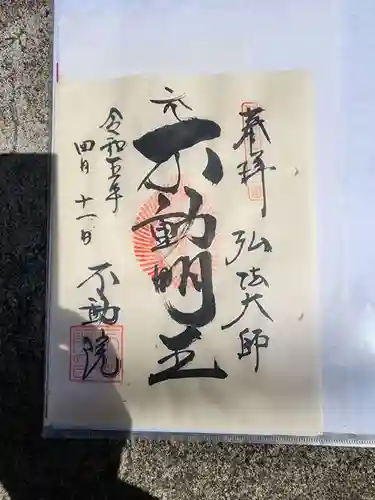 奉拝
弘法大師
元
不動明王
令和五年
四月十一日
不動院